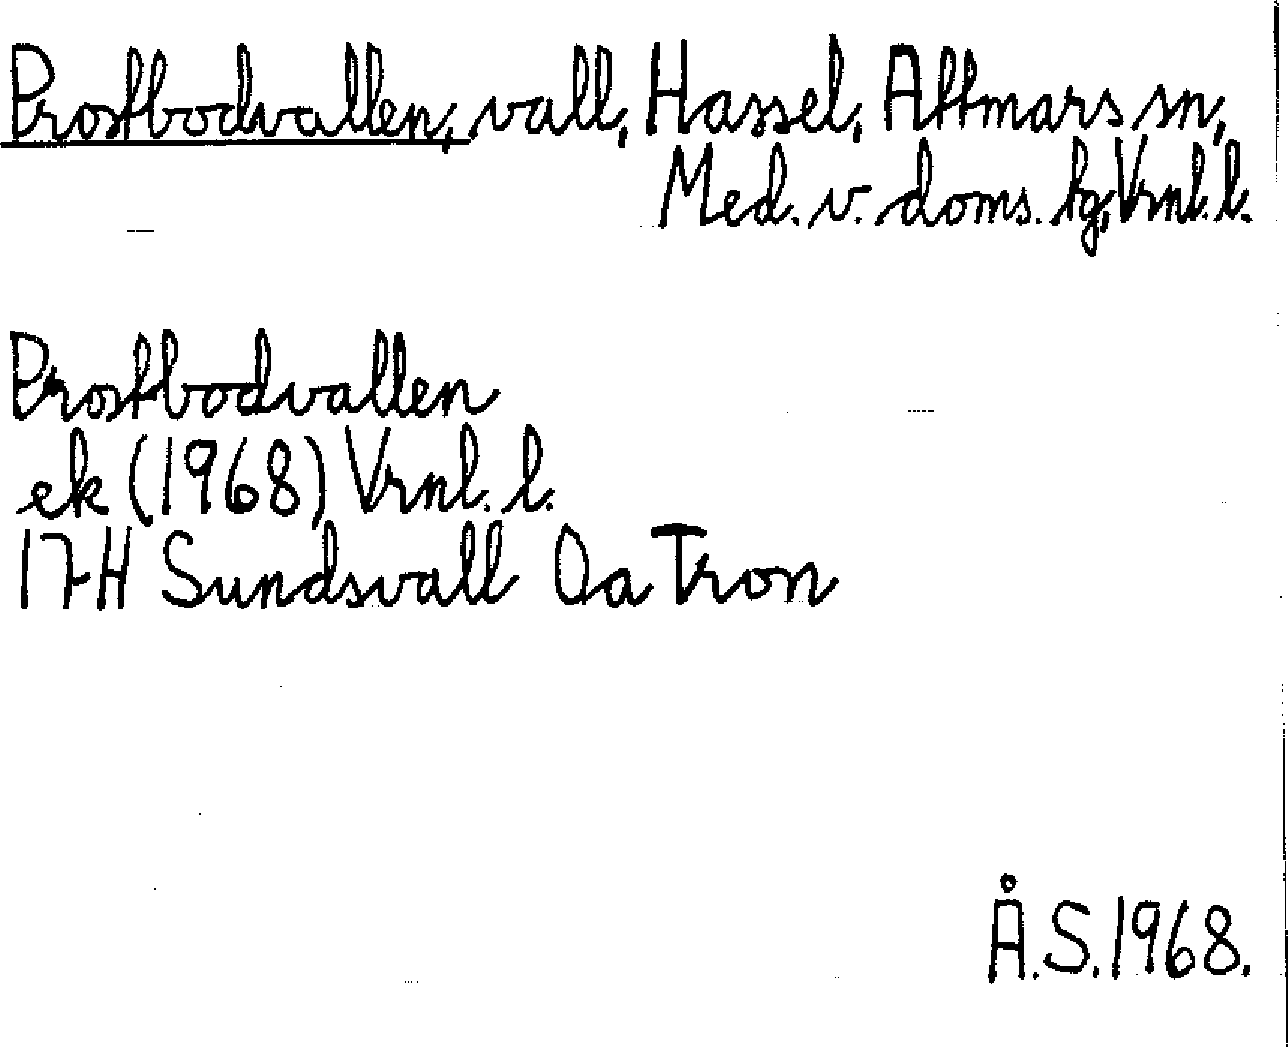 Prostbodvallen, vall, Hassel, Attmars sn,
Med. v. doms. tg, Vrnl. l.
Prostbodvallen
ek (1968) Vrnl. l.
17H Sundsvall 0a Tron
Å.S. 1968.